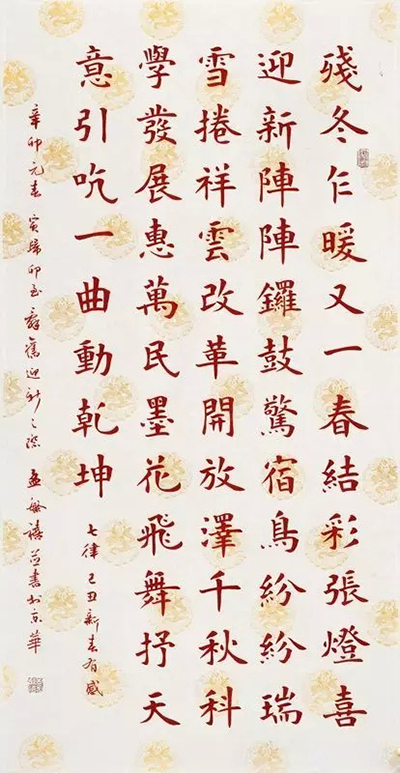 殘冬乍暖又一春結彩張燈喜
迎新陣陣鑼鼓驚宿鳥紛紛瑞
雪捲祥雲改革開放澤千秋科
學發展惠萬民墨花飛舞抒天
意引吭一曲動乾坤
七律己丑新春有感
辛卯元春寅歸卯至辭舊迎新之際孟敏禧並書於京華